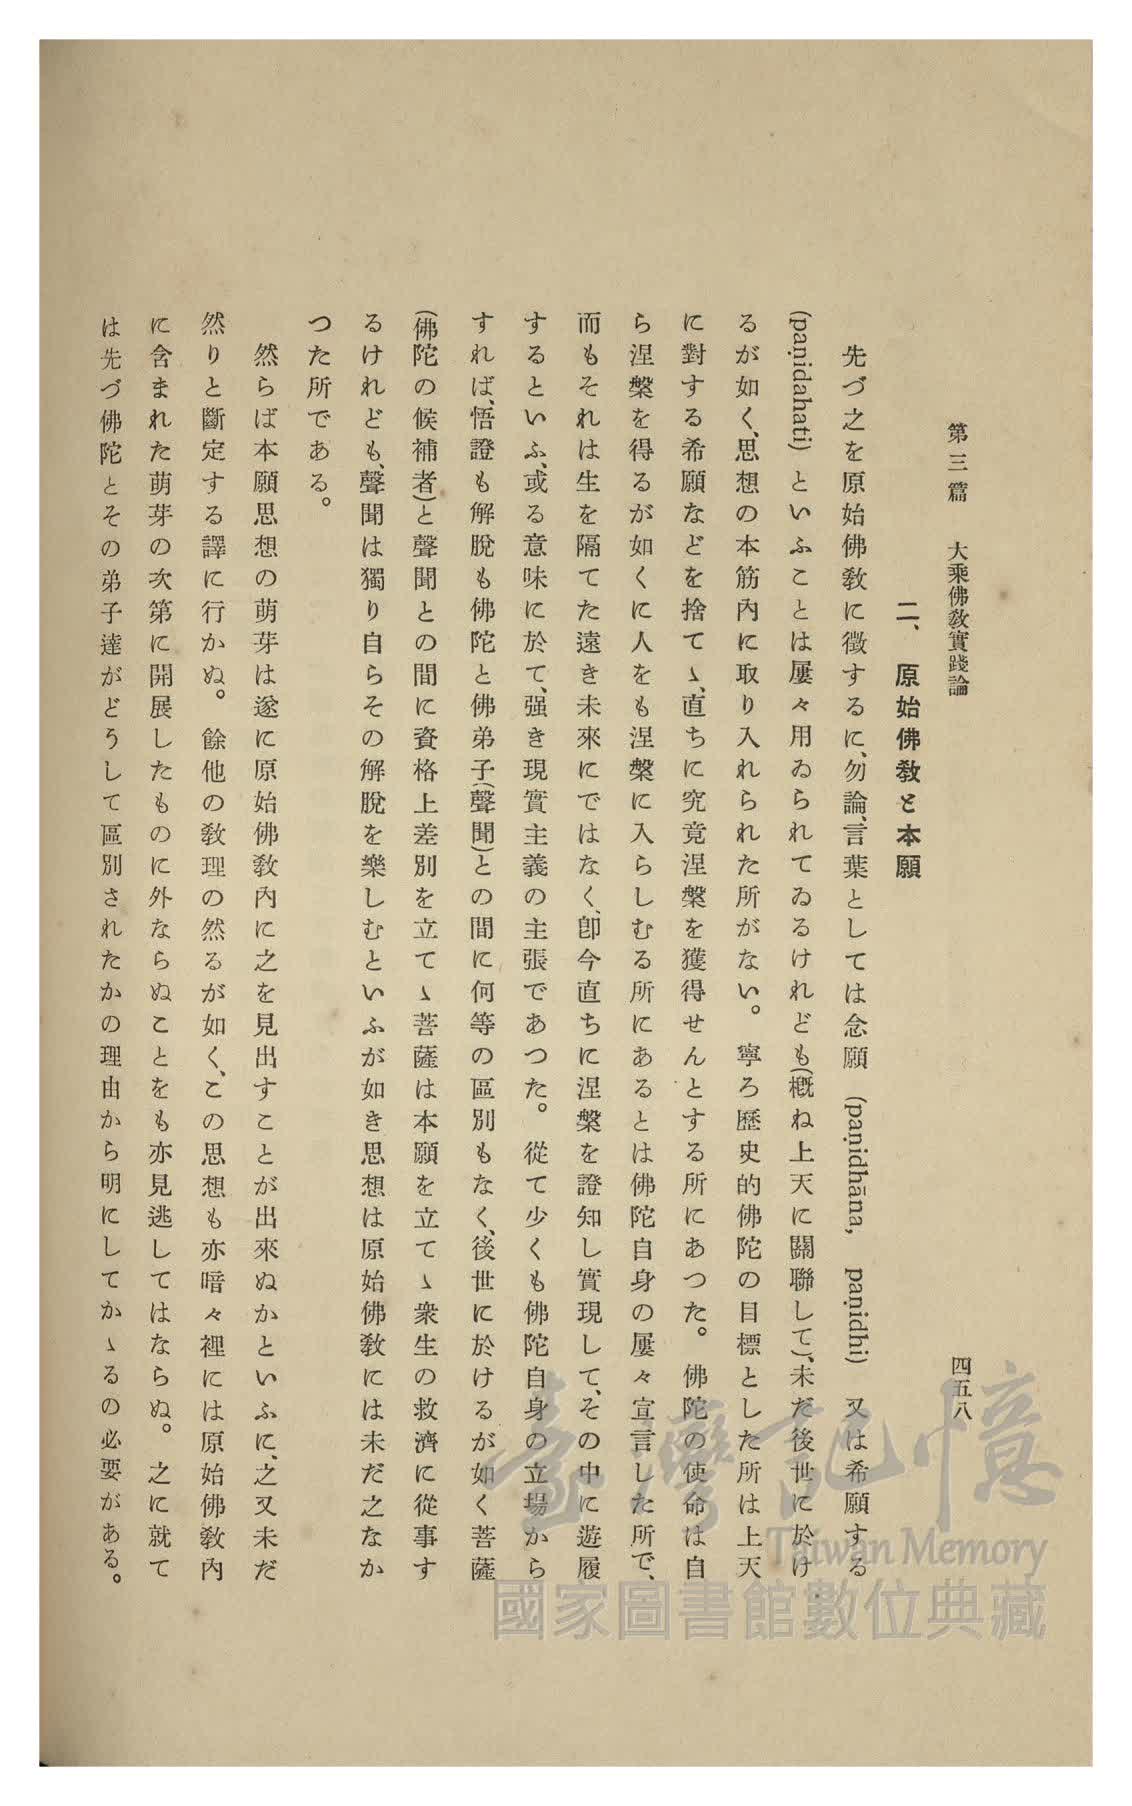 第三篇　大乘佛敎實踐論　四五八
二、原始佛敎と本願
先づ之を原始佛敎に徵するに、勿論、言葉としては念願 (paṇidhāna, paṇidhi) 又は希願する
(paṇidahati) といふことは屢々用ゐられてゐるけれども(槪ね上天に關聯して)、未だ後世に於け
るが如く、思想の本筋內に取り入れられた所がない。寧ろ歷史的佛陀の目標とした所は上天
に對する希願などを捨てゝ、直ちに究竟涅槃を獲得せんとする所にあつた。佛陀の使命は自
ら涅槃を得るが如くに人をも涅槃に入らしむる所にあるとは佛陀自身の屢々宣言した所で、
而もそれは生を隔てた遠き未來にではなく、卽今直ちに涅槃を證知し實現して、その中に遊履
するといふ、或る意味に於て、强き現實主義の主張であつた。從て少くも佛陀自身の立場から
すれば、悟證も解脫も佛陀と佛弟子(聲聞)との間に何等の區別もなく、後世に於けるが如く菩薩
(佛陀の候補者)と聲聞との間に資格上差別を立てゝ菩薩は本願を立てゝ衆生の救濟に從事す
るけれども、聲聞は獨り自らその解脫を樂しむといふが如き思想は原始佛敎には未だ之なか
つた所である。
然らば本願思想の萌芽は遂に原始佛敎內に之を見出すことが出來ぬかといふに、之又未だ
然りと斷定する譯に行かぬ。餘他の敎理の然るが如く、この思想も亦暗々裡には原始佛敎內
に含まれた萌芽の次第に開展したものに外ならぬことをも亦見逃してはならぬ。之に就て
は先づ佛陀とその弟子達がどうして區別されたかの理由から明にしてかゝるの必要がある。
臺灣記憶
Taiwan Memory
國家圖書館數位典藏